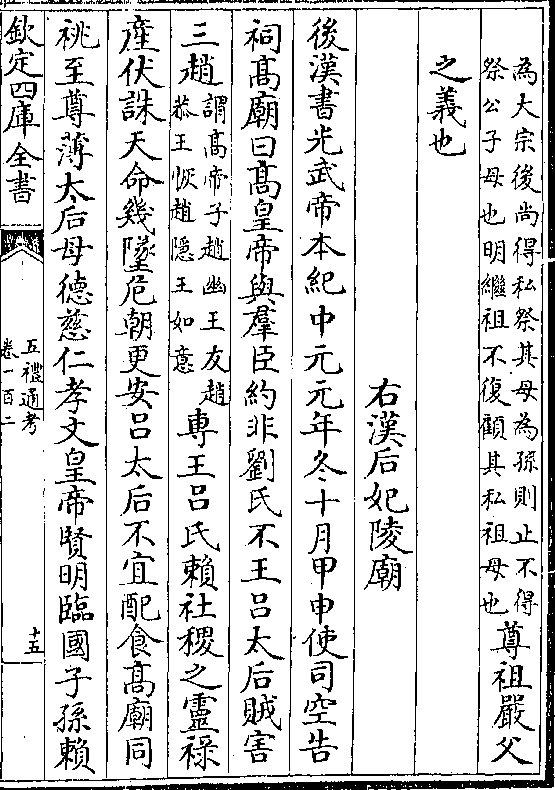 為大宗後尚得私祭其母為孫則止不得
祭公子母也明繼祖不復顧其私祖母也
尊祖嚴父
之義也
右漢后妃陵廟
後漢書光武帝本紀中元元年冬十月甲申使司空告
祠髙廟曰髙皇帝與羣臣約非劉氏不王吕太后賊害
三趙
謂髙帝子趙幽王友趙
恭王恢趙隱王如意
専王吕氏賴社稷之靈禄
産伏誅天命幾墜危朝更安吕太后不宜配食髙廟同
祧至尊薄太后母德慈仁孝文皇帝賢明臨國子孫賴
欽定四庫全書
五禮通考
卷一百二
十五